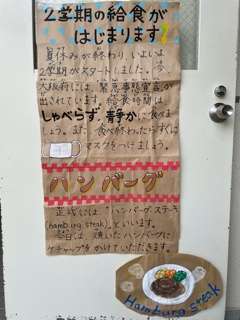 2学期の給食が
はじまります!
夏休みが終わり、いよいよ
2学期がスタートしました。今
大阪府には、緊急事態宣言が
出されています。給食時間は
しゃべらず、静かに食べま
しょう。また、食べ終わったらすぐに
マスクをつけましょう。
ハンバーグ
正式には、「ハンバーグ・ステーキ
(hamburg steak)」といいます。
今日は、焼いたハンバーグに
ケチャップをかけていただきます。
Hamburg steak